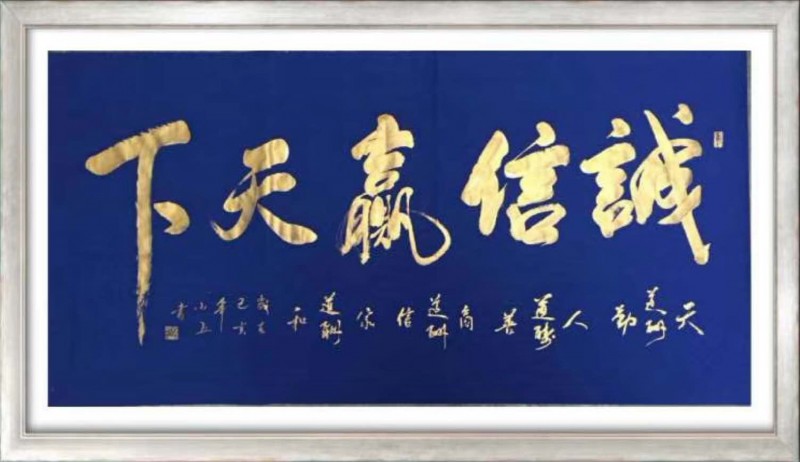 誠信贏天下
天道酬勤 人道酬善 商道酬信 家道酬和
歲在己亥年 書